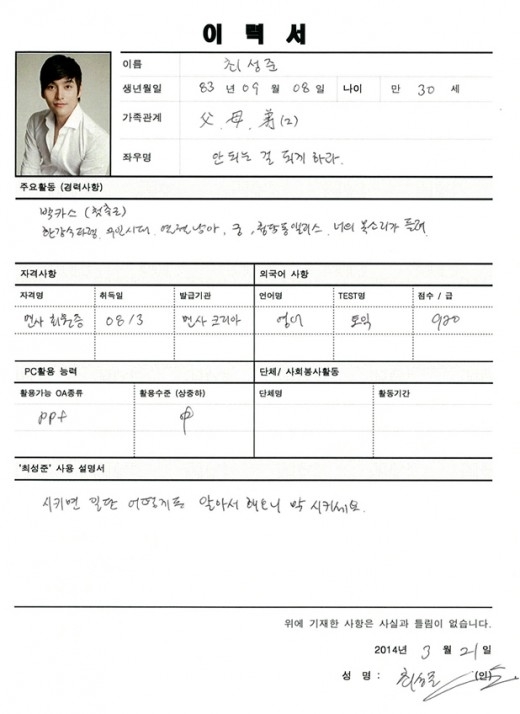 이 력 서
이름 최성준
생년월일 83 년 09 월 08 일 나이 만 30 세
가족관계 父, 母, 弟(2)
좌우명 안 되는 걸 되게 하라.
주요활동 (경력사항)
박카스 (첫출근)
한강수타령, 무인시대, 연하남아, 궁, 청담동앨리스, 너의 목소리가 들려.
자격사항 외국어 사항
자격명 취득일 발급기관 언어명 TEST명 점수 / 급
멘사 회원증 08/3 멘사 코리아 영어 토익 920
PC활용 능력 단체/ 사회봉사활동
활용가능 OA종류 활용수준 (상중하) 단체명 활동기간
PPT 中
'최성준' 사용 설명서
시키면 일단 어떻게든 알아서 해오니 막 시키세요.
위에 기재한 사항은 사실과 틀림이 없습니다.
2014년 3 월 21 일
성 명 : 최성준 (인)